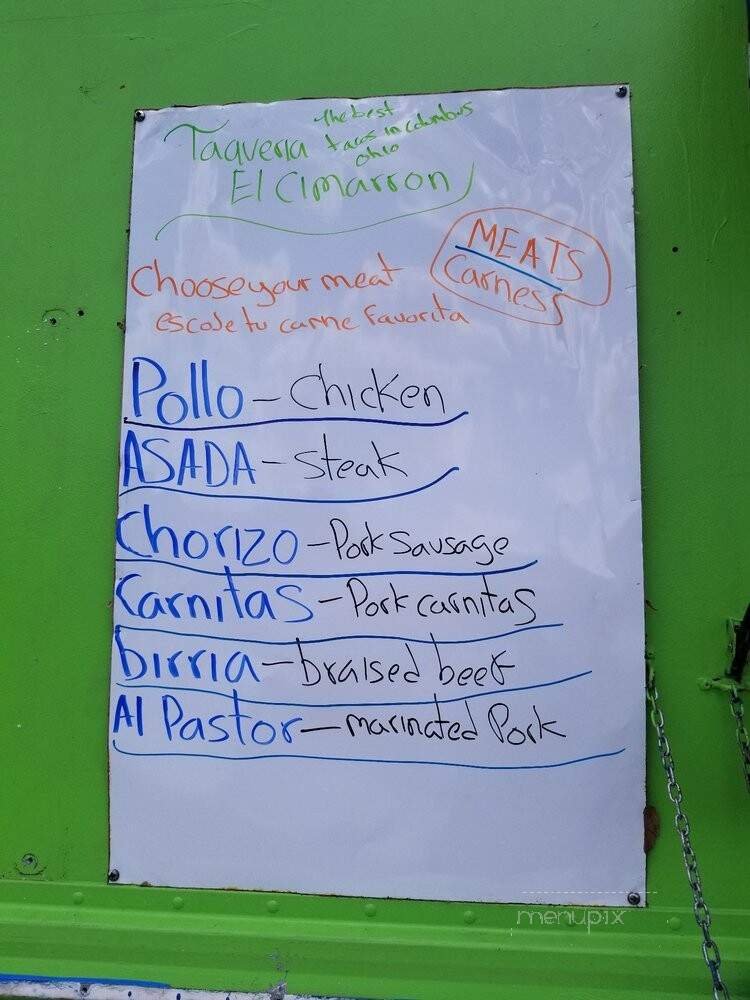 Taqueria
The best
tacos in columbus
ohio
El Cimarron
MEATS
Carness
Choose your meat
escoje tu carne Favorita
Pollo - Chicken
ASADA - Steak
Chorizo - Pork Sausage
Carnitas - Pork carnitas
birria - braised beef
Al Pastor - marinated Pork
menupix